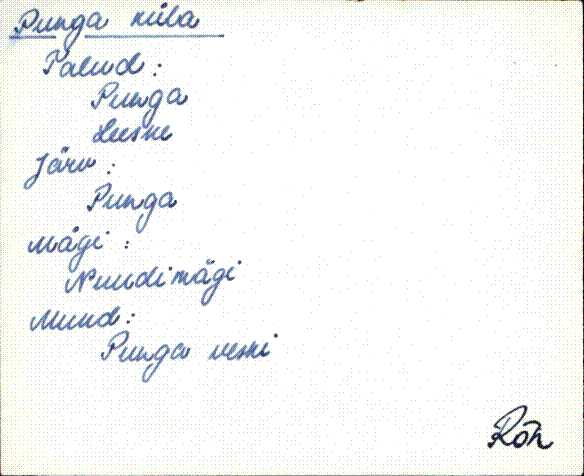 Punga küla
Talud:
Punga
Leesne
Järv:
Punga
Mägi:
Nuudimägi
Muud:
Punga veski
Rõn